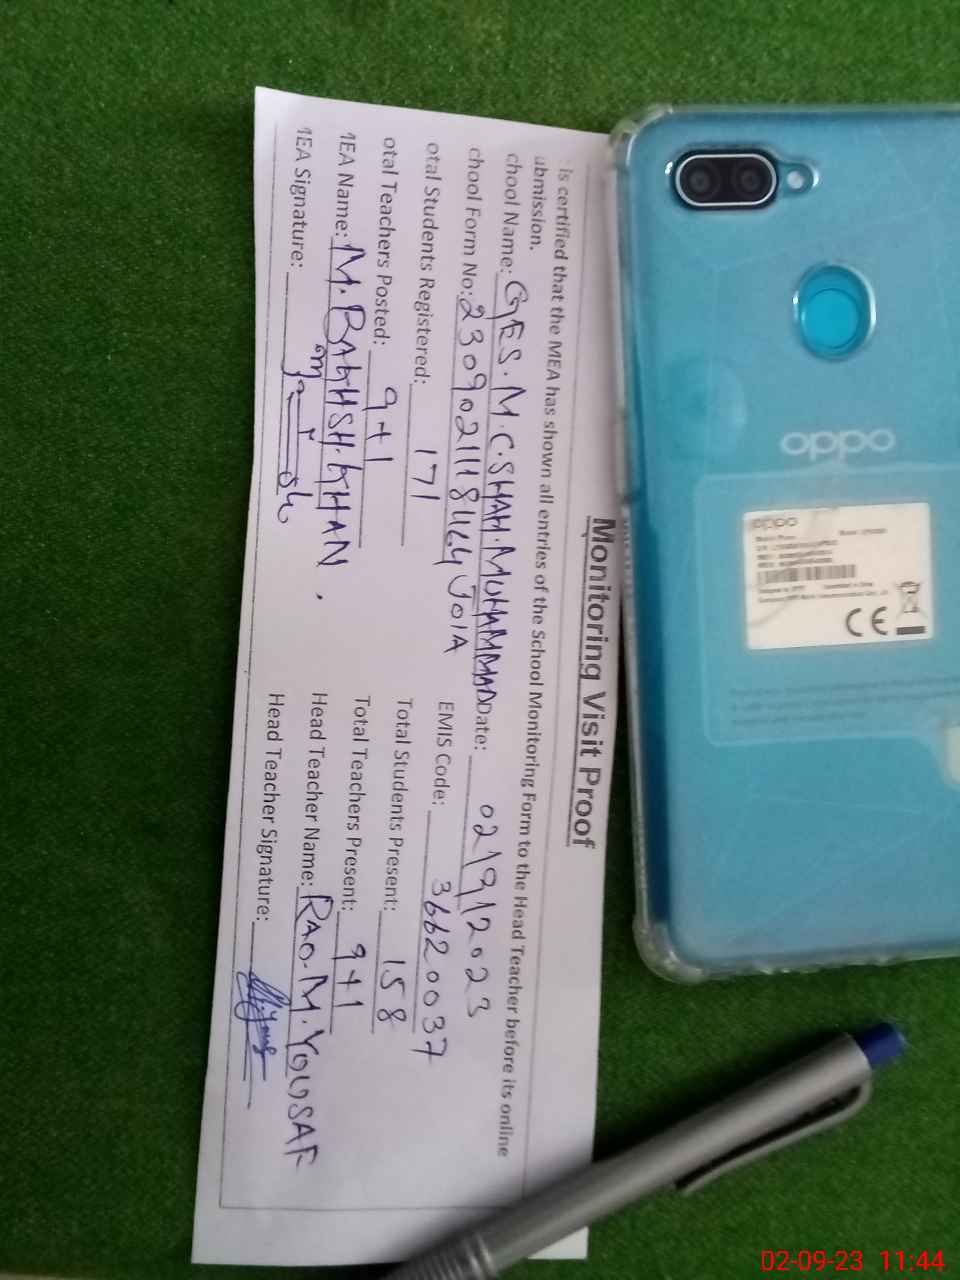 Monitoring Visit Proof
is certified that the MEA has shown all entries of the School Monitoring Form to the Head Teacher before its online
ubmission.
chool Name: GES. M.C. SHAH. MUHAMMAD Date: 02/9/2023
JOIA
chool Form No: EMIS Code: 36620037
otal Students Registered: 171 Total Students Present: 158
otal Teachers Posted: 9+1 Total Teachers Present: 9+1
MEA Name: M. BAKHSH. KHAN. Head Teacher Name: RAO. M. YOUSAF
MEA Signature: Head Teacher Signature:
oppo
oppo
CE
02-09-23 11:44